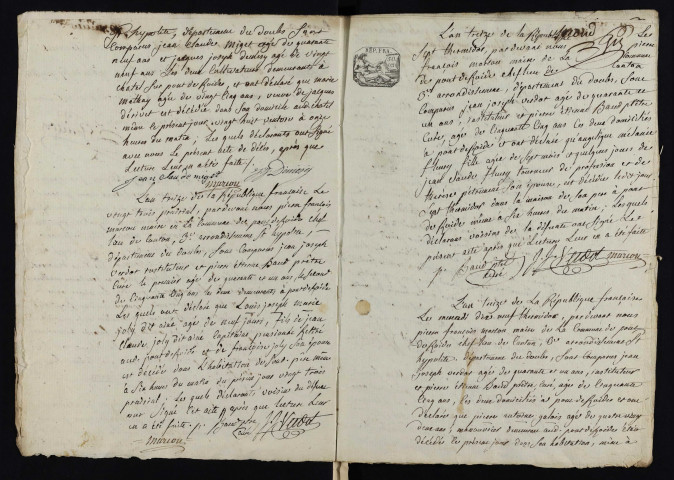 St hypolite, département du doubs Sont
Comparus jean Claude Miget agé de quarante
neuf ans et jacques joseph agé de vingt
ans Les deux Cultivateurs demeurants à
chatel Sur pont de Roide, et ont déclaré que marie
mathey agée de vingt Cinq ans, veuve de jacques
est décédée dans Son domicile audit chatel
même le présent jour, vingt huit ventose à onze
heures du matin, Les quels déclarants ont Signé
avec nous Le présent acte de décès, après que
Lecture Leur en a été faite
marion
L'an treize de la République française Le
vingt trois prairial, pardevant nous pierre françois
marion maire de La Commune de pont de Roide chef
lieu de Canton, 3e arrondissement St hypolite,
département du doubs, Sont Comparus jean joseph
verdot instituteur et pierre étienne Baud prêtre
Curé le premier agé de quarante et un ans, le Second
de Cinquante Cinq ans les deux demeurants à pont de Roide
Les quels ont déclaré que Louis joseph marie
joly dit ainé agé de neuf jours, fils de jean
Claude joly dit ainé Capitaine pensionné retiré
aud. pont de Roide et de françoise joly Son épouse
est décédé dans L'habitation du Sieur père même
à Six heures du matin du présent jour vingt trois
prairial. Les quels déclarants voisins du défunt
ont Signé Cet acte après que lecture Leur
en a été faite. p. Baud ptre Verdot
curé
marion
L'an treize de la République Le
Sept thermidor, pardevant nous pierre
françois marion maire de La Commune
de pont de Roide chef lieu de Canton
3e arrondissement, département du doubs, Sont
Comparus jean joseph verdot agé de quarante et
un ans, instituteur et pierre étienne Baud prêtre
Curé, agé de Cinquante Cinq ans Les deux domiciliés
à pont de Roide et ont déclaré qu'angelique mélanie
fleury fille agée de Sept mois et quelques jours de
jean Claude fleury tourneur de profession et de
therese Son épouse, est décédée le dit jour
Sept thermidor dans la maison de Son père à pont
de Roide même à Six heures du matin. Lesquels
déclarants voisins de la défunte ont Signé. Le
présent acte après que Lecture Leur en a été faite
p. Baud ptre Verdot marion
curé
L'an treize de La République française
Le neuf thermidor, pardevant nous
pierre françois marion maire de La Commune de pont
de Roide chef lieu de Canton, 3e arrondissement St
hypolite département du doubs, Sont Comparus jean
joseph verdot agé de quarante et un ans, instituteur
et pierre étienne Baud prêtre, curé, agé de Cinquante
Cinq ans, les deux domiciliés au pont de Roide et ont
déclaré que pierre antoine agé de quatre vingt
deux ans, manouvrier demeurant aud. pont de Roide était
décédé le présent jour dans Son habitation, même à